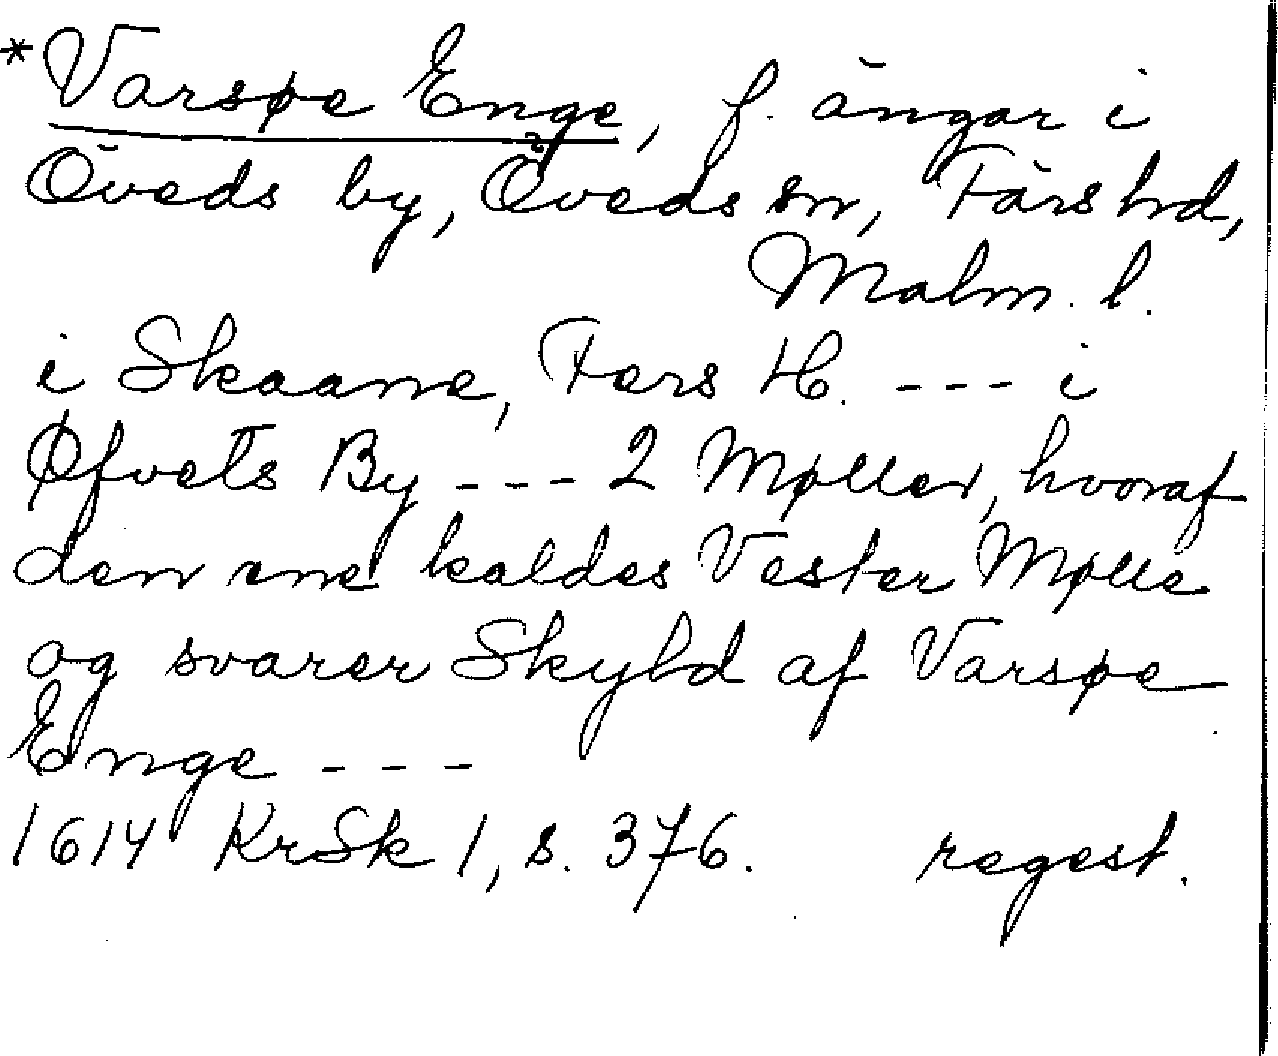 *Varsøe Enge, f. ängar i
Öveds by, Öveds sn, Färs hd,
Malm. l.
i Skaane, Fers H. --- i
Øfvets By --- 2 Møller, hvoraf
den ene kaldes Vester Mølle
og svarer Skyld af Varsøe
Enge ---
1614 KrSk 1, s. 376. regest.